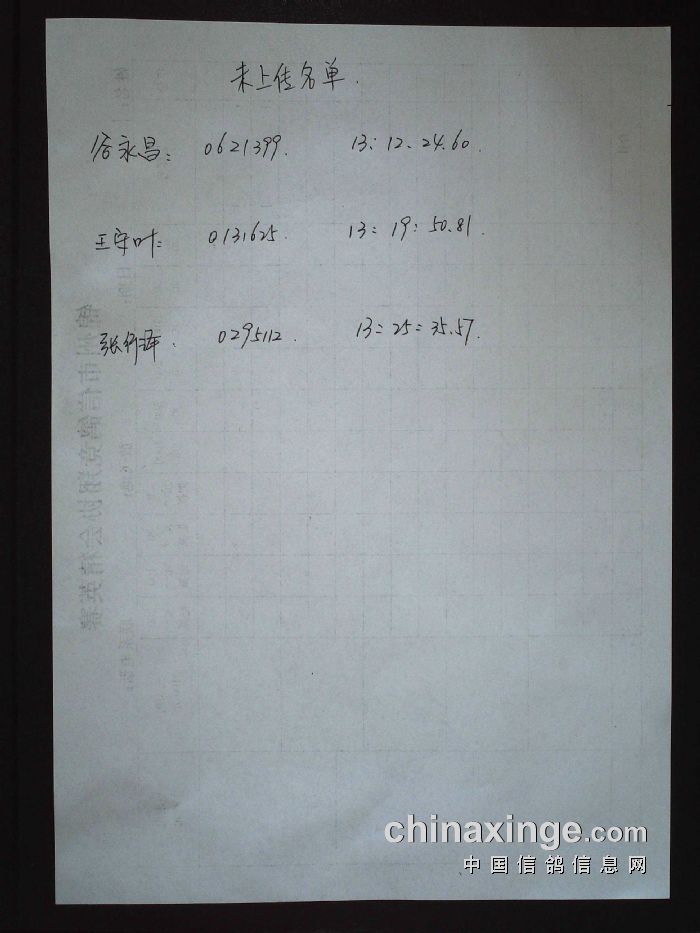 未上传名单.
谷永昌: 0621399. 13:12.24.60.
王守叶: 0131625 13:19:50.81.
张 0295112. 13:25:35.57.
chinaxinge.com
中国信鸽信息网